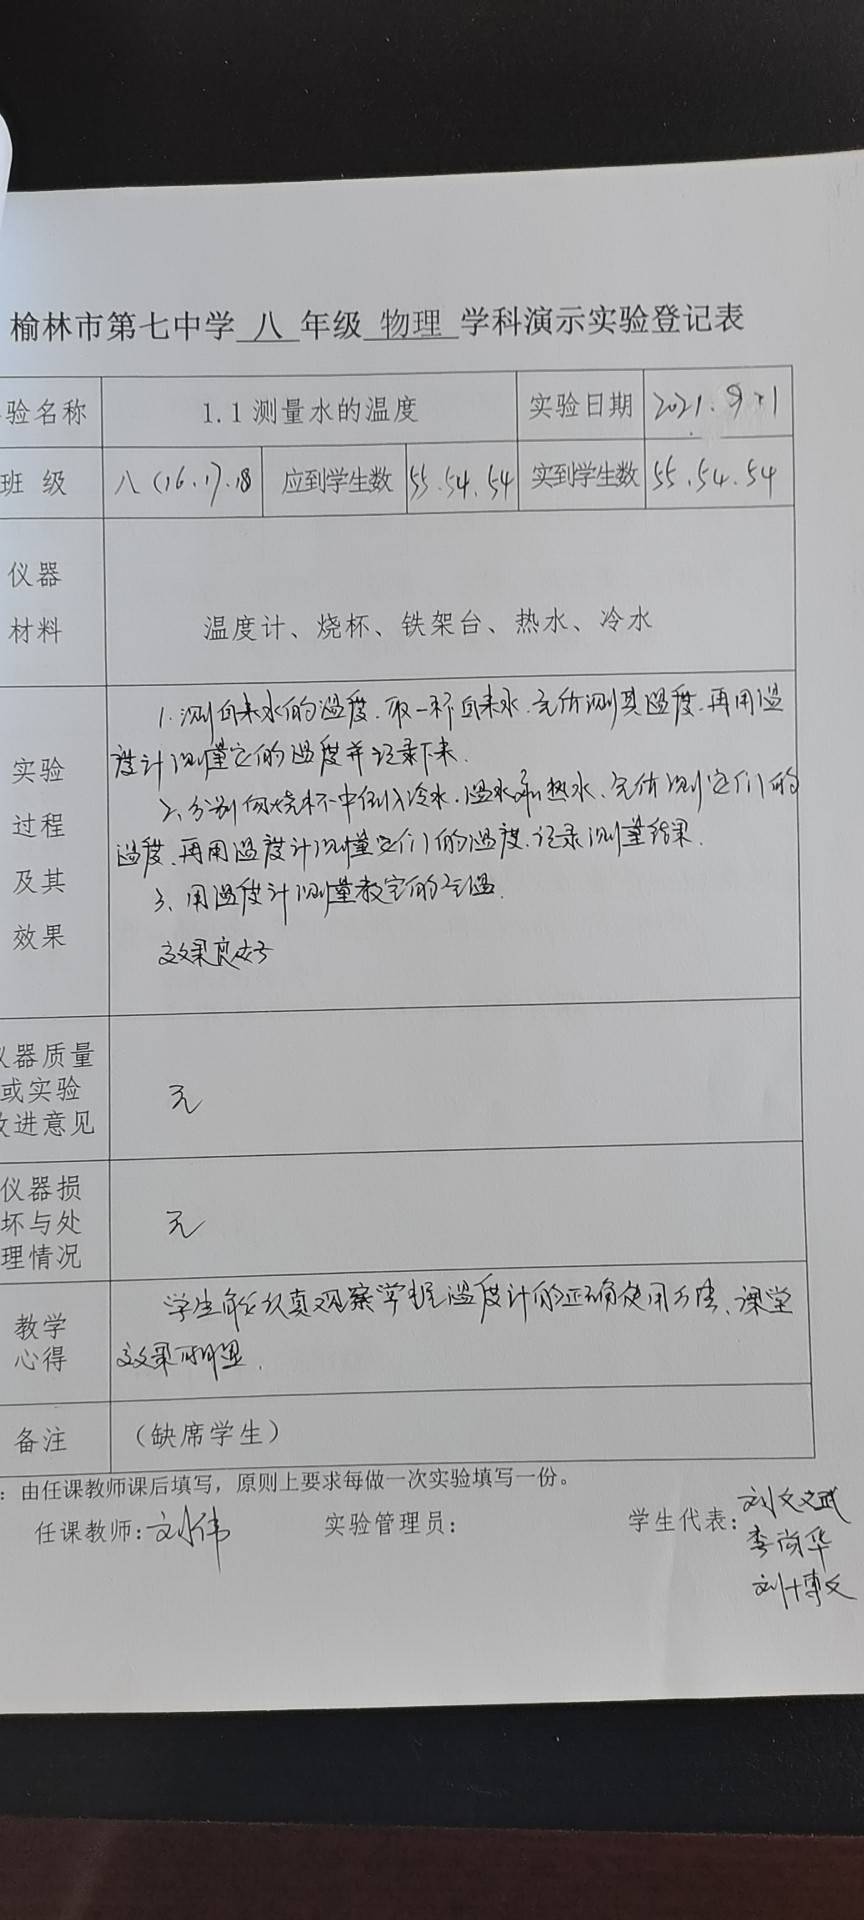 榆林市第七中学 八 年级 物理 学科演示实验登记表
验名称 1.1 测量水的温度 实验日期 2021.9.1
班 级 八(16.17.18 应到学生数 55.54.54 实到学生数 55.54.54
仪器
材料 温度计、烧杯、铁架台、热水、冷水
实验
过程
及其
效果
1. 测自来水的温度.取一杯自来水.先估测其温度.再用温
度计测量它的温度并记录下来.
2、分别向烧杯中倒入冷水.温水和热水、先估测它们的
温度.再用温度计测量它们的温度.记录测量结果.
3、用温度计测量教室的气温.
效果良好
仪器质量
或实验
改进意见
无
仪器损
坏与处
理情况
无
教学
心得
学生能认真观察掌握温度计的正确使用方法、课堂
效果明显.
备注 (缺席学生)
：由任课教师课后填写，原则上要求每做一次实验填写一份。
任课教师: 刘伟 实验管理员: 学生代表: 刘文武
李尚华
刘博文